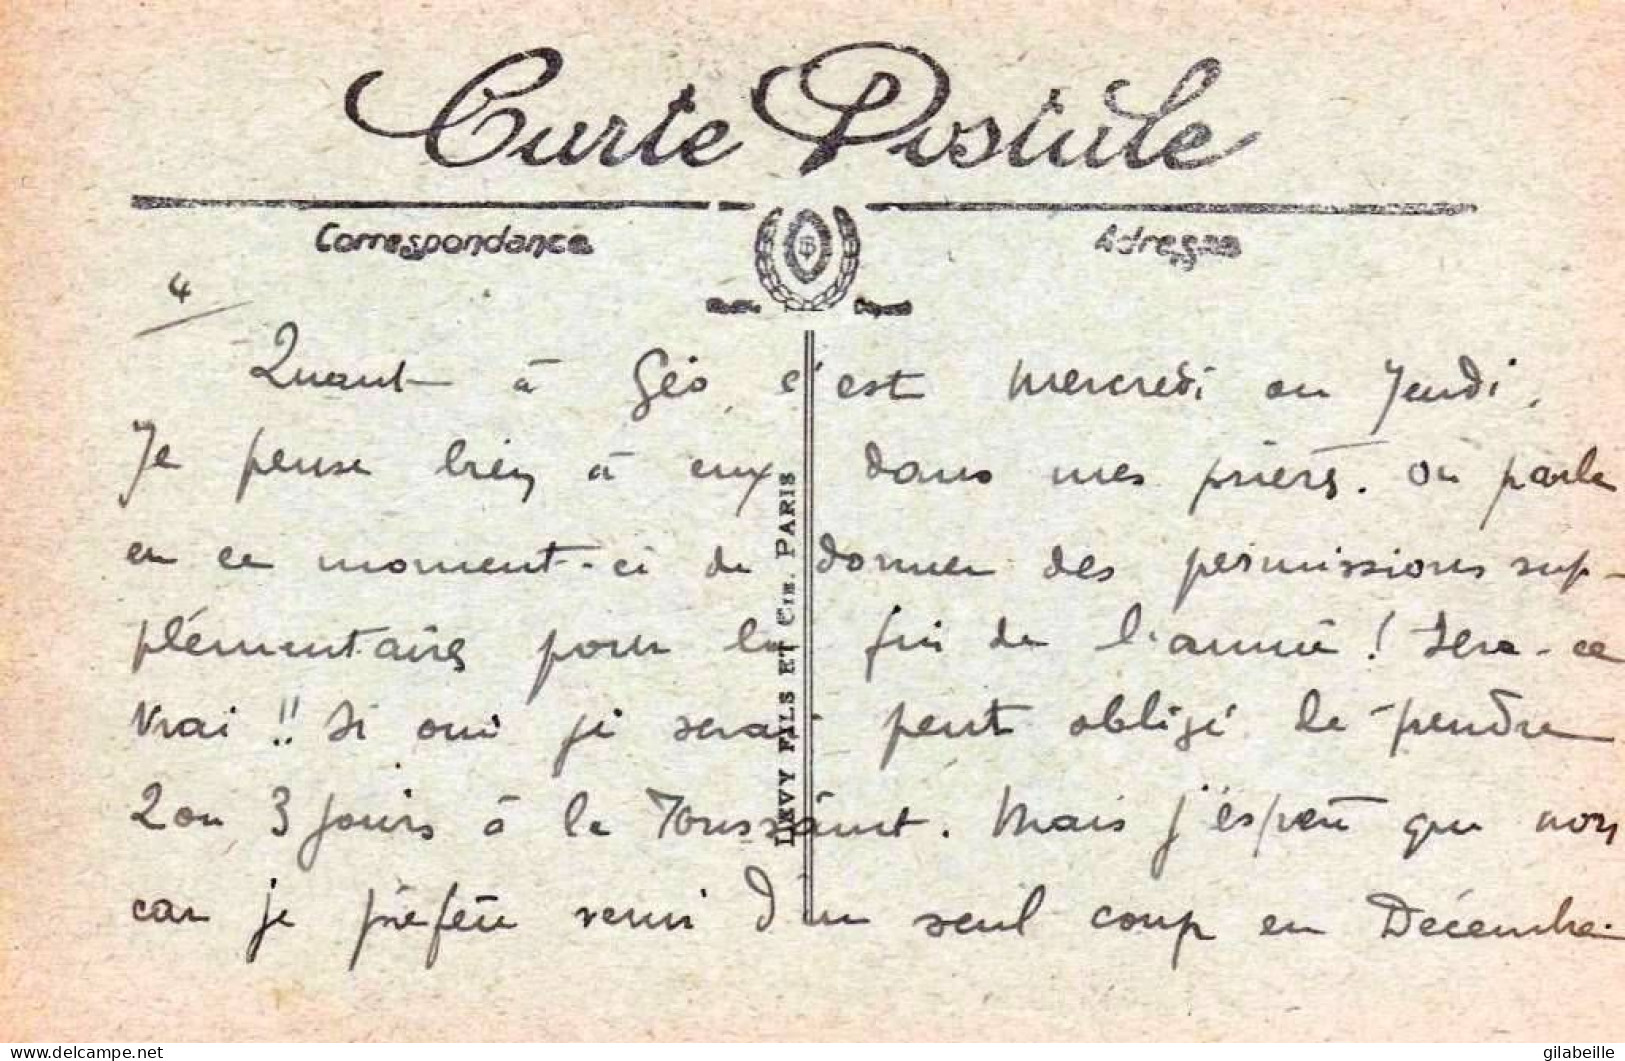 Carte Postale
Correspondance
Adresse
4
Quant à Géo, c'est mercredi ou Jeudi.
Je pense bien à eux dans mes prières. On parle
en ce moment-ci de donner des permissions sup-
plémentaires pour la fin de l'année ! Sera-ce
vrai !! Si oui je serai peut obligé de prendre
2 ou 3 jours à la Toussaint. Mais j'espère que non
car je préfère venir d'un seul coup en Décembre.
LEVY FILS ET CIE. PARIS
delcampe.net
gilabeille